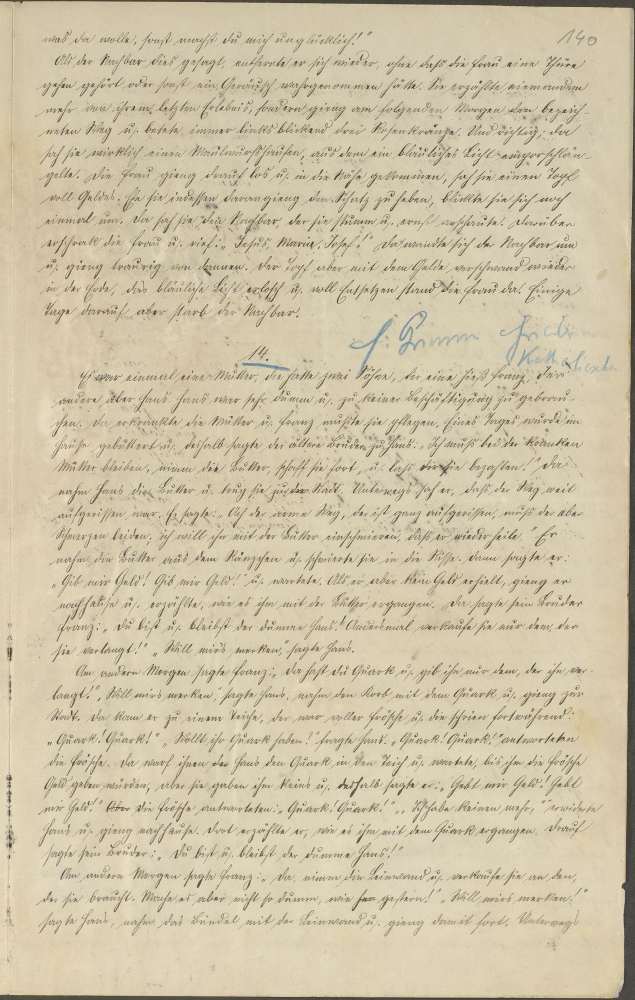 140
was du wolle, sonst machst du mich unglücklich!"
Als der Nachbar dies gesagt, entfernte er sich wieder, ohne daß die Frau eine Thüre
gehen gehört oder sonst ein Geräusch wahrgenommen hätte. Sie erzählte niemandem
mehr von ihrem letzten Erlebnis, sondern gieng am folgenden Morgen den bezeich-
neten Weg u. betete immer links blickend drei Rosenkränze. Und richtig, da
sah sie wirklich einen Maulwurfshaufen, aus dem ein bläuliches Licht emporschlän-
gelte. Die Frau gieng darauf los u. in die Nähe gekommen, sah sie einen Topf
voll Geldes. Ehe sie indessen darangieng den Schatz zu heben, blickte sie sich noch
einmal um. Da sah sie den Nachbar, der sie stumm u. ernst anschaute. Darüber
erschrak die Frau u. rief: "Jesus, Maria, Josef!" Da wandte sich der Nachbar um
u. gieng traurig von dannen. Der Topf aber mit dem Gelde verschwand wieder
in der Erde, das bläuliche Licht erlosch u. voll Entsetzen stand die Frau da. Einige
Tage darauf aber starb der Nachbar.
14.
s. Grimm
Es war einmal eine Mutter, die hatte zwei Söhne, der eine hieß Franz, der
andere aber Hans. Hans war sehr dumm u. zu keiner Beschäftigung zu gebrau-
chen. Da erkrankte die Mutter u. Franz mußte sie pflegen. Eines Tages wurde im
Hause gebuttert u. deshalb sagte der ältere Bruder zu Hans: "Ich muß bei der kranken
Mutter bleiben, nimm die Butter, schaff sie fort, u. laß dir sie bezahlen!" Da
nahm Hans die Butter u. trug sie zur Stadt. Unterwegs sah er, daß der Weg weit
aufgerissen war. Er sagte: "Ach der arme Weg, der ist ganz aufgerissen, muß der aber
Schmerzen leiden, ich will ihn mit der Butter einschmieren, daß er wieder heile." Er
nahm die Butter aus dem Ränzchen u. schmierte sie in die Risse. Dann sagte er:
"Gib mir Geld! Gib mir Geld!" u. wartete. Als er aber kein Geld erhielt, gieng er
nachhause u. erzählte, wie es ihm mit der Butter ergangen. Da sagte sein Bruder
Franz: "Du bist u. bleibst der dumme Hans! Andersmal verkaufe sie nur dem, der
sie verlangt!" "Will mirs merken," sagte Hans.
Am andern Morgen sagte Franz: "Da hast du Quark u. gib ihn nur dem, der ihn ver-
langt!" "Will mirs merken," sagte Hans, nahm den Korb mit dem Quark u. gieng zur
Stadt. Da kam er zu einem Teiche, der war voller Frösche u. die schrien fortwährend:
"Quark! Quark!" "Wollt ihr Quark haben?" fragte Hans. "Quark! Quark!" antworteten
die Frösche. Da warf ihnen der Hans den Quark in den Teich u. wartete, bis ihm die Frösche
Geld geben würden, aber sie gaben ihm keins u. deshalb sagte er: "Gebt mir Geld! Gebt
mir Geld!" Die Frösche antworteten: "Quark! Quark!" "Ich habe keinen mehr," erwiderte
Hans u. gieng nachhause. Dort erzählte er, wie es ihm mit dem Quark ergangen. Drauf
sagte sein Bruder: "Du bist u. bleibst der dumme Hans!"
Am andern Morgen sagte Franz: "Da, nimm die Leinwand u. verkaufe sie an den,
der sie braucht. Mache es aber nicht so dumm, wie gestern!" "Will mirs merken!"
sagte Hans, nahm das Bündel mit der Leinwand u. gieng damit fort. Unterwegs